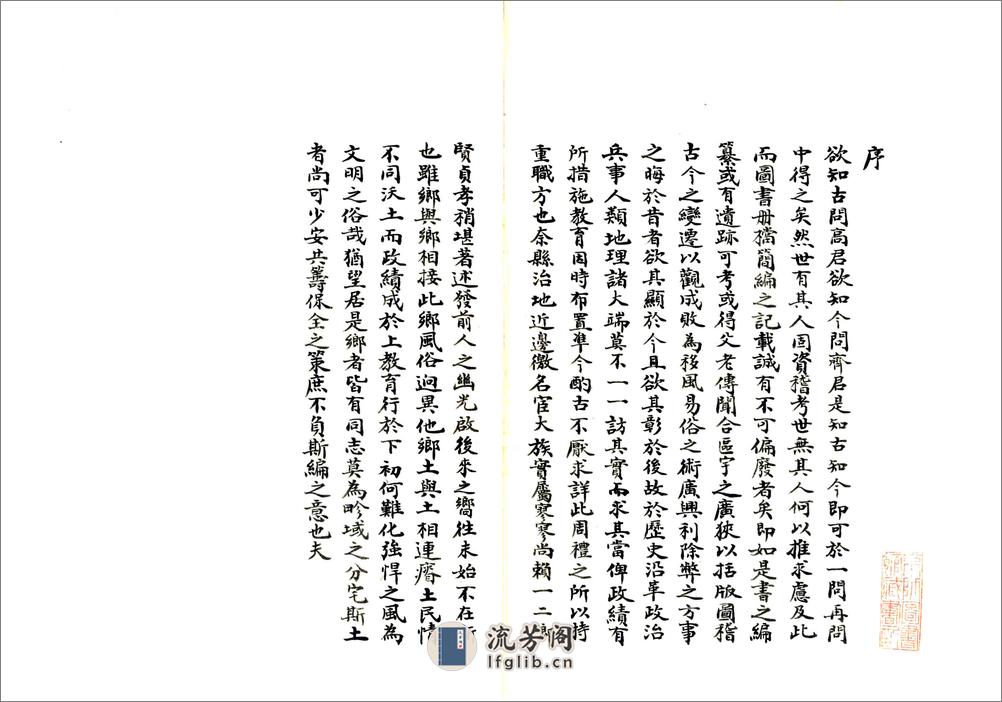 序
欲知古問高君欲知今問齊君是知古知今即可於一問再問
中得之矣然世有其人固資稽考世無其人何以推求慮及此
而圖書册檔簡編之記載誠有不可偏廢者矣即如是書之編
纂或有遺跡可考或得父老傳聞合區宇之廣狹以括版圖稽
古今之變遷以觀成敗為移風易俗之術廣興利除弊之方事
之晦於昔者欲其顯於今且欲其彰於後故於歷史沿革政治
兵事人類地理諸大端莫不一一訪其實而求其當俾政績有
所措施教育因時布置準今酌古不厭求詳此周禮之所以特
重職方也奈縣治地近邊徼名宦大族實屬寥寥尚賴一二
賢貞孝稍堪著述發前人之幽光啟後來之嚮往未始不在
也雖鄉與鄉相接此鄉風俗迥異他鄉土與土相連瘠土民情
不同沃土而政績成於上教育行於下初何難化強悍之風為
文明之俗哉猶望居是鄉者皆有同志莫為畛域之分宅斯土
者尚可少安共籌保全之策庶不負斯編之意也夫
流芳阁
lfglib.cn